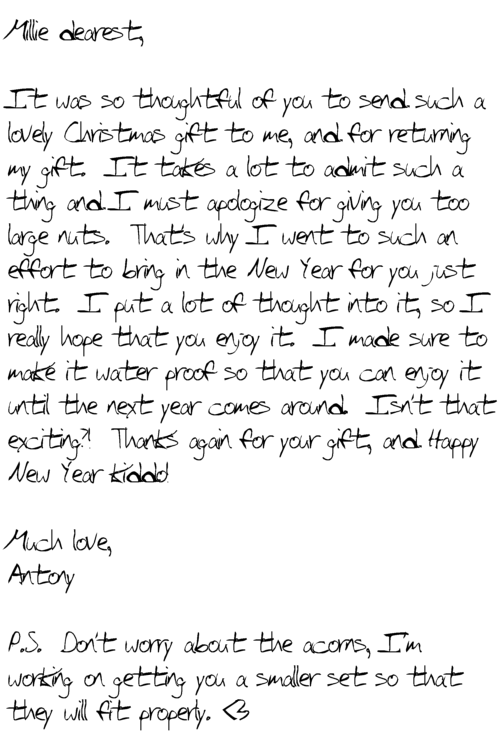 Millie dearest,
It was so thoughtful of you to send such a
lovely Christmas gift to me, and for returning
my gift. It takes a lot to admit such a
thing and I must apologize for giving you too
large nuts. That's why I went to such an
effort to bring in the New Year for you just
right. I put a lot of thought into it, so I
really hope that you enjoy it. I made sure to
make it water proof so that you can enjoy it
until the next year comes around. Isn't that
exciting?! Thanks again for your gift, and Happy
New Year kiddo!
Much love,
Antony
P.S. Don't worry about the acorns, I'm
working on getting you a smaller set so that
they will fit properly. <3